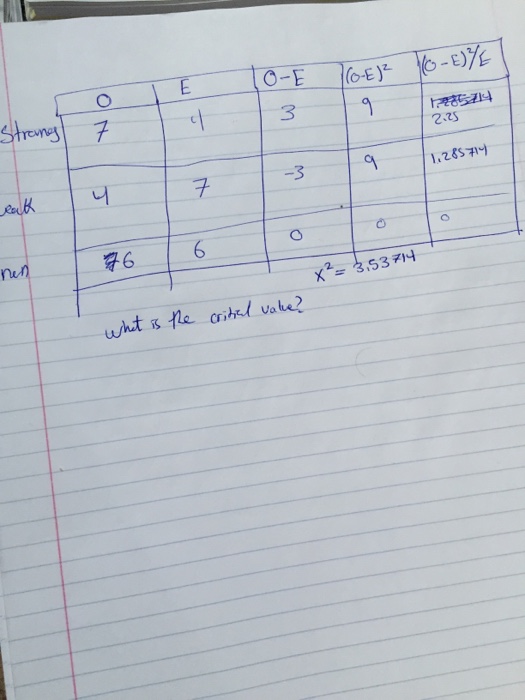 O E O-E (O-E)² (O-E)²/E
Strong 7 4 3 9 2.25
4 7 -3 9 1.285714
6 6 0 0 0
x² = 3.53714
What is the critical value?